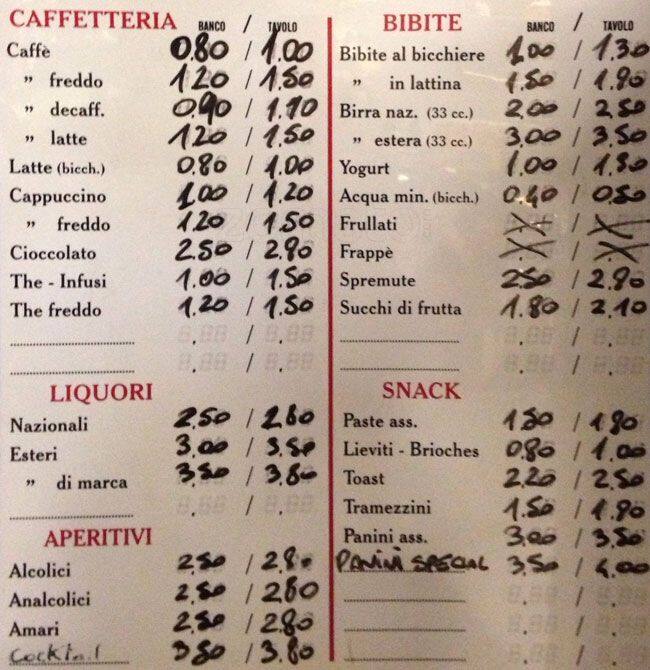 CAFFETTERIA BANCO / TAVOLO
Caffè 0.80 / 1.00
” freddo 1.20 / 1.50
” decaff. 0.90 / 1.10
” latte 1.20 / 1.50
Latte (bicch.) 0.80 / 1.00
Cappuccino 1.00 / 1.20
” freddo 1.20 / 1.50
Cioccolato 2.50 / 2.80
The - Infusi 1.00 / 1.50
The freddo 1.20 / 1.50
LIQUORI
Nazionali 2.50 / 2.80
Esteri 3.00 / 3.50
” di marca 3.50 / 3.80
APERITIVI
Alcolici 2.50 / 2.80
Analcolici 2.50 / 2.80
Amari 2.50 / 2.80
Cocktail 3.50 / 3.80
BIBITE BANCO / TAVOLO
Bibite al bicchiere 1.00 / 1.30
” in lattina 1.50 / 1.90
Birra naz. (33 cc.) 2.00 / 2.50
” estera (33 cc.) 3.00 / 3.50
Yogurt 1.00 / 1.30
Acqua min. (bicch.) 0.40 / 0.50
Frullati
Frappè
Spremute 2.50 / 2.80
Succhi di frutta 1.80 / 2.10
SNACK
Paste ass. 1.50 / 1.90
Lieviti - Brioches 0.80 / 1.00
Toast 2.20 / 2.50
Tramezzini 1.50 / 1.90
Panini ass. 3.00 / 3.50
PANINI SPECIAL 3.50 / 4.00